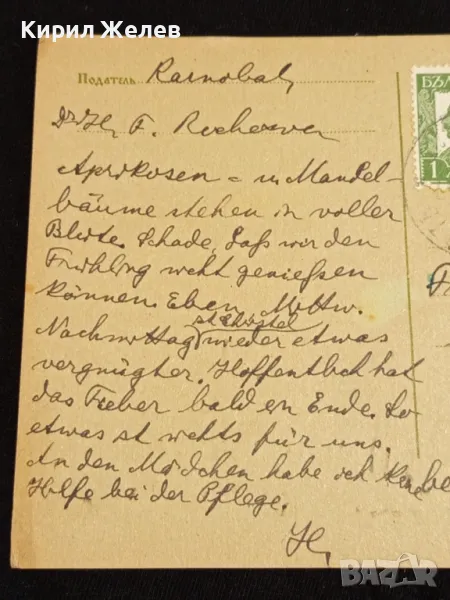 Кирил Желев
Податель Karnobat
БЪЛ
Dr H. F.
1
Aprikosen = u. Mandel-
bäume stehen in voller
Blüte. Schade, daß wir den
Frühling nicht genießen
können. Eben Mittw.
Nachmittag ist Christel wieder etwas
vergnügter. Hoffentlich hat
das Fieber bald ein Ende. So
etwas ist nichts für uns.
An den Mädchen habe ich keine
Hilfe bei der Pflege.
H.
BAZAR